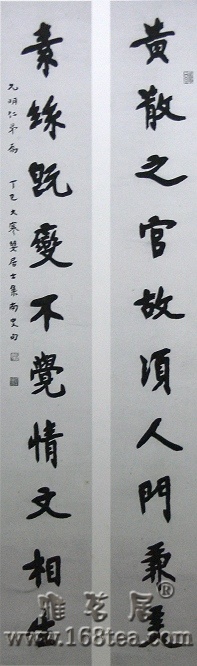 黄散之官故須人門兼美
素絲既變不覺情文相生
仁弟屬 丁巳大寒 居士集南史句
雅茗居®
www.168tea.com